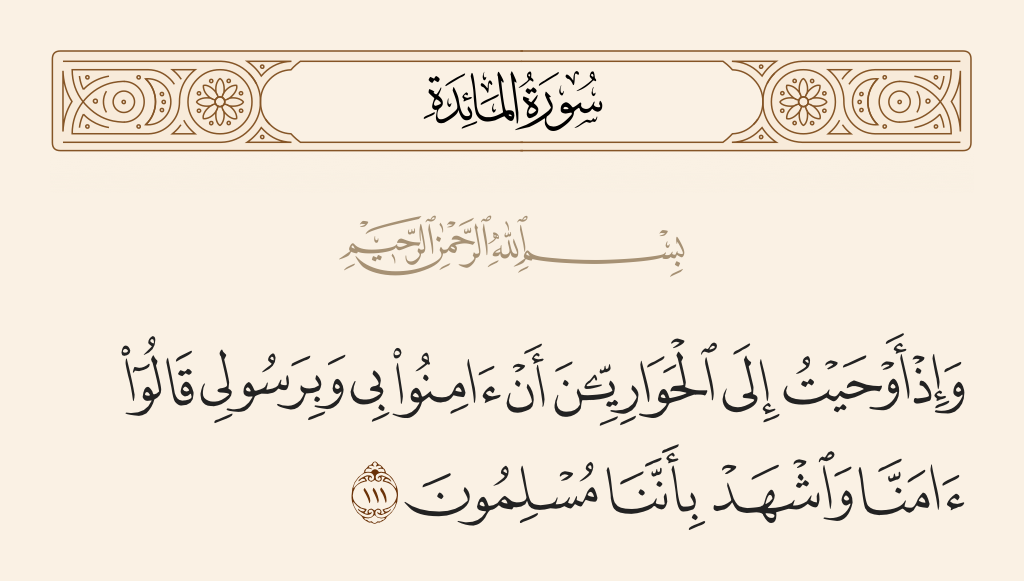 سُورَةُ المَائِدَةِ
بِسْمِ ٱللَّهِ ٱلرَّحْمَٰنِ ٱلرَّحِيمِ
وَإِذْ أَوْحَيْتُ إِلَى ٱلْحَوَارِيِّـۧنَ أَنْ ءَامِنُوا۟ بِى وَبِرَسُولِى قَالُوٓا۟
ءَامَنَّا وَٱشْهَدْ بِأَنَّنَا مُسْلِمُونَ ١١١